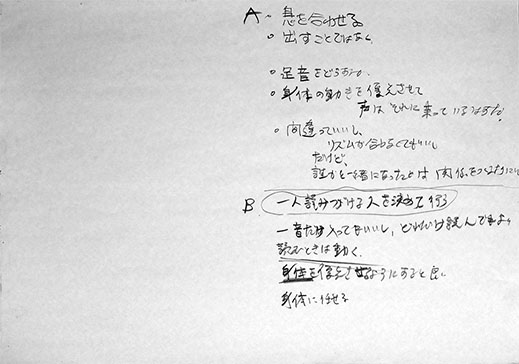 A ・息を合わせる
・出すことではなく
・足音をどうするか
・身体の動きを優えさせて
声はそれに乗っている
・間違っていいし、
リズムが合わなくてもいい
だけど、
誰かと一緒になったとき は
B. 一人読みつづける人を決めて行う
一音だけ入ってもいいし、どれだけ読んでもよい
読むときは動く。
身体を優えさせるようにすると良い
身体に任せる